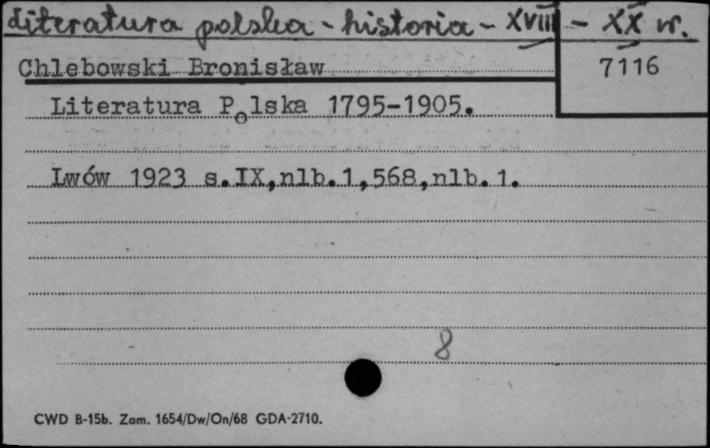 Literatura polska - historia - XVIII - XX w.
Chlebowski Bronisław
7116
Literatura Polska 1795-1905.
Lwów 1923 s.IX,nlb.1,568,nlb.1.
8
CWD B-15b. Zam. 1654/Dw/On/68 GDA-2710.